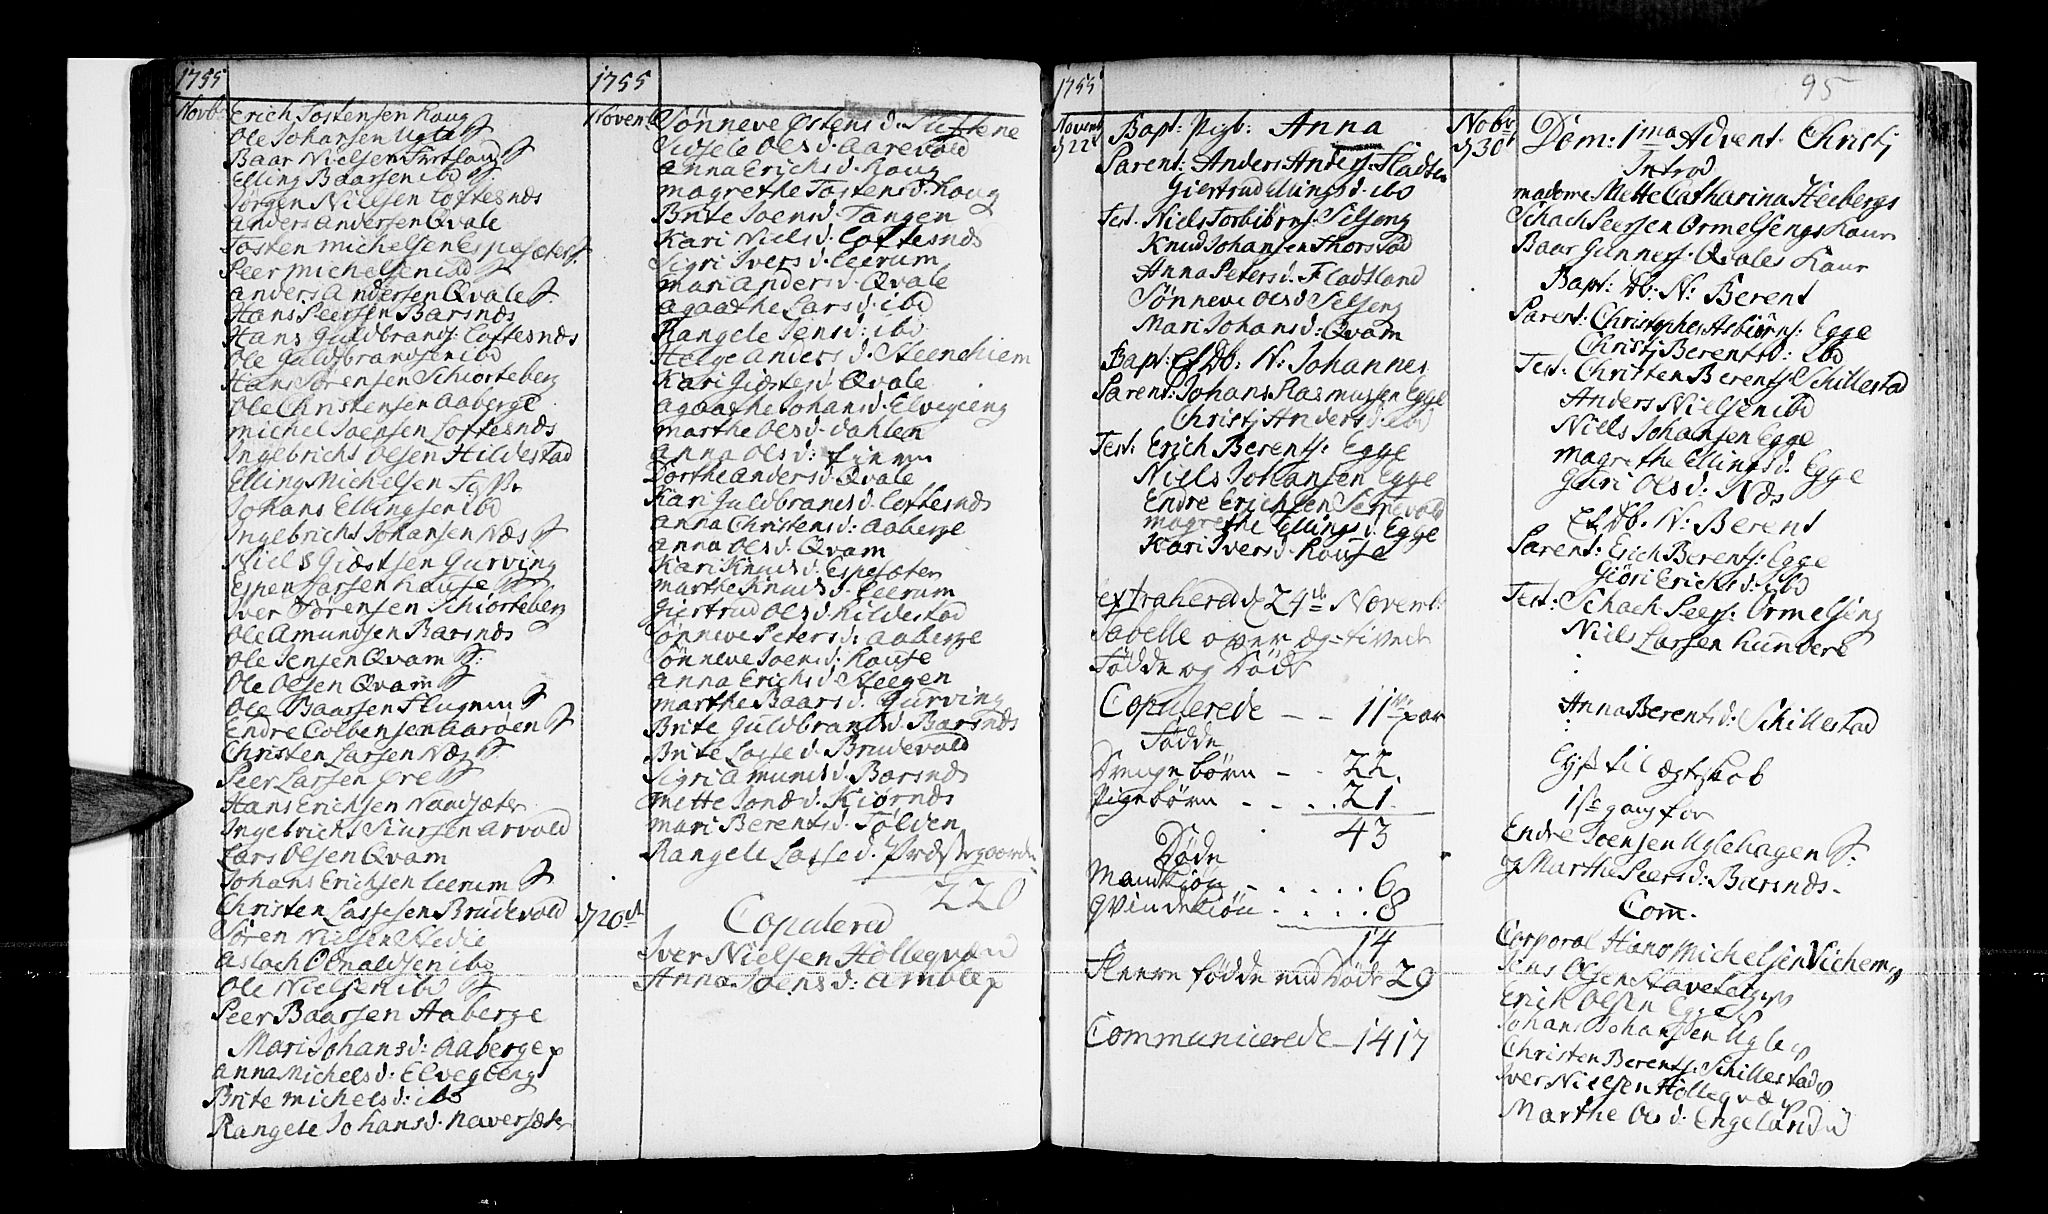 1755
Novbr
Erich Tostensen Haug
Ole Johansen Ugle
Baar Nielsen
Elling Baarsen ibd
Jørgen Nielsen Loftesnæs
Anders Andersen Qvale
Tosten Michelsen Espesæter
Peer Michelsen ibd
Anders Andersen Qvale
Hans Peersen Barsnæs
Hans Guldbrands: Loftesnæs
Ole Guldbrandsen ibd
Hans Sørensen Schiorteberg
Ole Christensen Aaberge
Michel Joensen Loftesnæs
Ingebricht Olsen Hildestad
Elling Michelsen
Johans Ellingsen ibd
Ingebricht Johansen Næs
Niels Giæstsen Gurving
Espen Larsen Hause
Iver Sørensen Schiorteberg
Ole Amundsen Barsnæs
Ole Jensen Qvam
Ole Olsen Qvam
Ole Baarsen Flugum
Endre Colbensen Aarøen
Christen Larsen Næs
Peer Larsen Øre
Hans Erichsen Naversæter
Ingebricht Siursen Arvold
Lars Olsen Qvam
Johans Erichsen Leerum
Christen Lassesen Brudevold
Søren Nielsen Stedie
Aslach Onaldsen ibd
Ole Nielsen ibd
Peer Baarsen Aaberge
Mari Johansd: Aaberge
Anna Michelsd: Elvegieng
Brite Michelsd: ibd
Rangele Johansd. Naversæter
1755
Novemb
Sønneve Østensd.
Sidsele Olsd. Aarevold
Anna Erichsd. Haug
Magrethe Tostensd. Haug
Brite Joensd. Tangen
Kari Nielsd. Loftesnæs
Sigri Iversd. Leerum
Mari Andersd. Qvale
Agaathe Larsd. ibd
Rangele Jensd: ibd
Helge Andersd. Steenehiem
Kari Giæstesd. Qvale
Agaathe Johansd. Elvegieng
Marthe Olsd. Dahlen
Anna Olsd:
Dorthe Andersd. Qvale
Kari Guldbrandsd. Loftesnæs
Anna Christensd: Aaberge
Anna Olsd: Qvam
Kari Knudsd. Espesæter
Marthe Knudsd. Leerum
Giertrud Olsd. Hildestad
Sønneve Petersd: Aaberge
Sønneve Joensd: Hause
Anna Erichsd. Steegen
Marthe Baarsd. Gurving
Brite Guldbrandsd. Barsnæs
Brite Lassed. Brudevold
Sigri Amundsd. Barsnæs
Mette Jonæd. Kiørnæs
Mari Berentsd. Tølven
Rangele Lassed. Præstegaarden
220
d 20de
Copulered
Iver Nielsen Holleqvæn
Anna Joensd: Amble
1755
Novemb
d 22
Bapt: Pigb: Anna
Parent: Anders Anders: Fladten
Giertrud Ellingsd. ibd
Test: Niels Torbiørns: Selseng
Knud Johansen Thorstad
Anna Petersd. Fladtland
Sønneve Olsd. Selseng
Mari Johansd: Qvam
Bapt: et Db. N: Johannes
Parent: Johans Rasmusen Egge
Christj Andersd. ibd
Test: Erich Berents: Egge
Niels Johansen Egge
Endre Erichsen Setrevold
Magrethe Ellingsd. Egge
Kari Iversd. Hause
extraherede 24de Novemb:
Tabelle over Ægteviede
Fødde og Døde
Copulerede - - 11 par
Fødde
Drengebørn - - 22.
Pigebørn - - . . 21.
43
Døde
Mandkiøn - . . . . . 6
Qvindekiøn . . . . . 8
14
Fleere fødde end Døde 29
Communicerede - 1417
95
Nobr
d 30
Dom: 1ma Advent. Christj
Introd
Madame Mette Catharina Heibergs
Schach Peersen Ormelsengs Kaane
Baar Gunners: Qvales Kaane
Bapt: Db. N: Berent
Parent: Christopher Asbiørns: Egge
Christj Berentsd: ibd
Test: Christen Berents: Schillestad
Anders Nielsen ibd
Niels Johansen Egge
Magrethe Ellingsd: Egge
Gøri Olsd: Næs
Et Db. N: Berent
Parent: Erich Berents: Egge
Giøri Erichsd: ibd
Test: Schach Peers: Ormelseng
Niels Larsen Hundere
Anna Berentsd: Schillestad
Lyst til Ægteskab
1ste gang for
Endre Joensen Uglehagen
og Marthe Peersd: Barsnæs.
Com.
Corporal Hans Michelsen Vichem
Jens Olsen
Erich Olsen Egge
Johans Johansen Ugle
Christen Berents: Schillestad
Iver Nielsen Holleqvæn
Marthe Olsd: Engeland